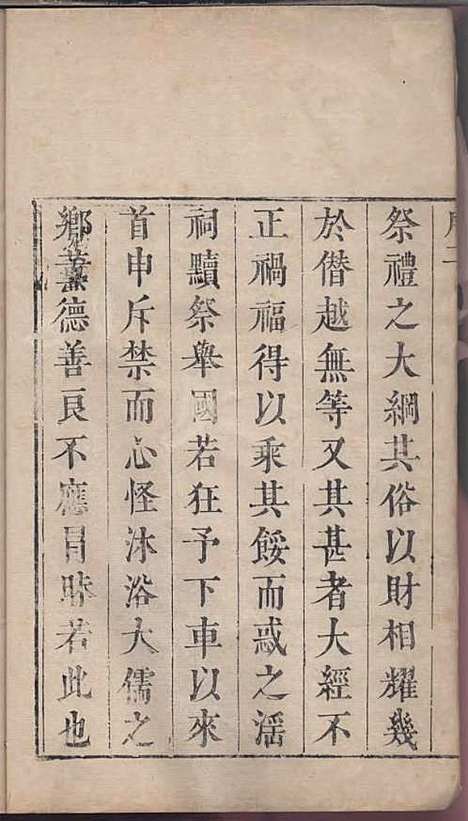 祭禮之大綱其俗以財相耀幾
於僭越無等又其甚者大經不
正禍福得以乘其餒而惑之滛
祠黷祭舉國若狂予下車以來
首申斥禁而心怪沐浴大儒之
鄉薰德善良不應冒昧若此也